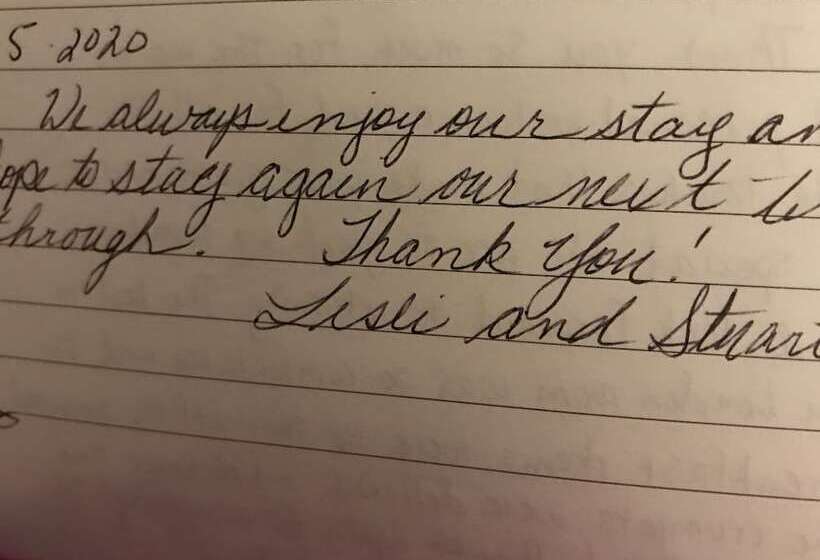 5 · 2020
We always enjoy our stay an
ope to stay again our next t
through. Thank You!
Lisli and Stuart